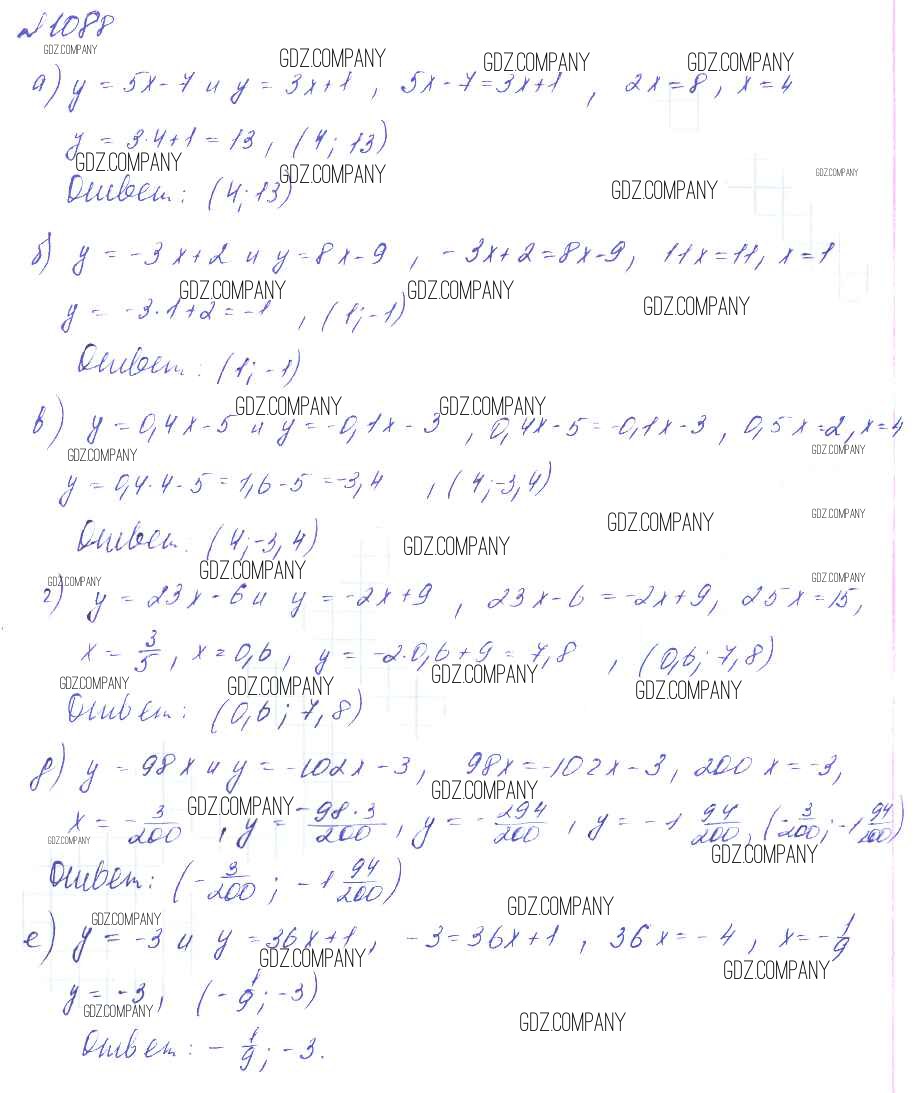 №1088
GDZ.COMPANY
GDZ.COMPANY GDZ.COMPANY GDZ.COMPANY
а) y = 5x - 7 и y = 3x + 1 , 5x - 7 = 3x + 1 , 2x = 8, x = 4
y = 3·4 + 1 = 13, (4; 13)
GDZ.COMPANY GDZ.COMPANY GDZ.COMPANY
Ответ: (4; 13) GDZ.COMPANY
б) y = -3x + 2 и y = 8x - 9 , -3x + 2 = 8x - 9, 11x = 11, x = 1
GDZ.COMPANY GDZ.COMPANY GDZ.COMPANY
y = -3·1 + 2 = -1 , (1; -1)
Ответ: (1; -1)
GDZ.COMPANY GDZ.COMPANY
в) y = 0,4x - 5 и y = -0,1x - 3 , 0,4x - 5 = -0,1x - 3 , 0,5x = 2, x = 4
GDZ.COMPANY GDZ.COMPANY
y = 0,4·4 - 5 = 1,6 - 5 = -3,4 , (4; -3,4)
GDZ.COMPANY GDZ.COMPANY
Ответ: (4; -3,4) GDZ.COMPANY
GDZ.COMPANY GDZ.COMPANY GDZ.COMPANY
г) y = 23x - 6 и y = -2x + 9 , 23x - 6 = -2x + 9, 25x = 15,
x = 3/5, x = 0,6, y = -2·0,6 + 9 = 7,8 , (0,6; 7,8)
GDZ.COMPANY GDZ.COMPANY GDZ.COMPANY GDZ.COMPANY
Ответ: (0,6; 7,8)
д) y = 98x и y = -102x - 3, 98x = -102x - 3, 200x = -3,
GDZ.COMPANY GDZ.COMPANY
x = -3/200 , y = -98·3/200, y = -294/200 , y = -1 94/200, (-3/200; -1 94/200)
GDZ.COMPANY GDZ.COMPANY
Ответ: (-3/200; -1 94/200)
GDZ.COMPANY GDZ.COMPANY
е) y = -3 и y = 36x + 1, -3 = 36x + 1 , 36x = -4 , x = -1/9
GDZ.COMPANY GDZ.COMPANY
y = -3, (-1/9; -3)
GDZ.COMPANY GDZ.COMPANY
Ответ: -1/9; -3.